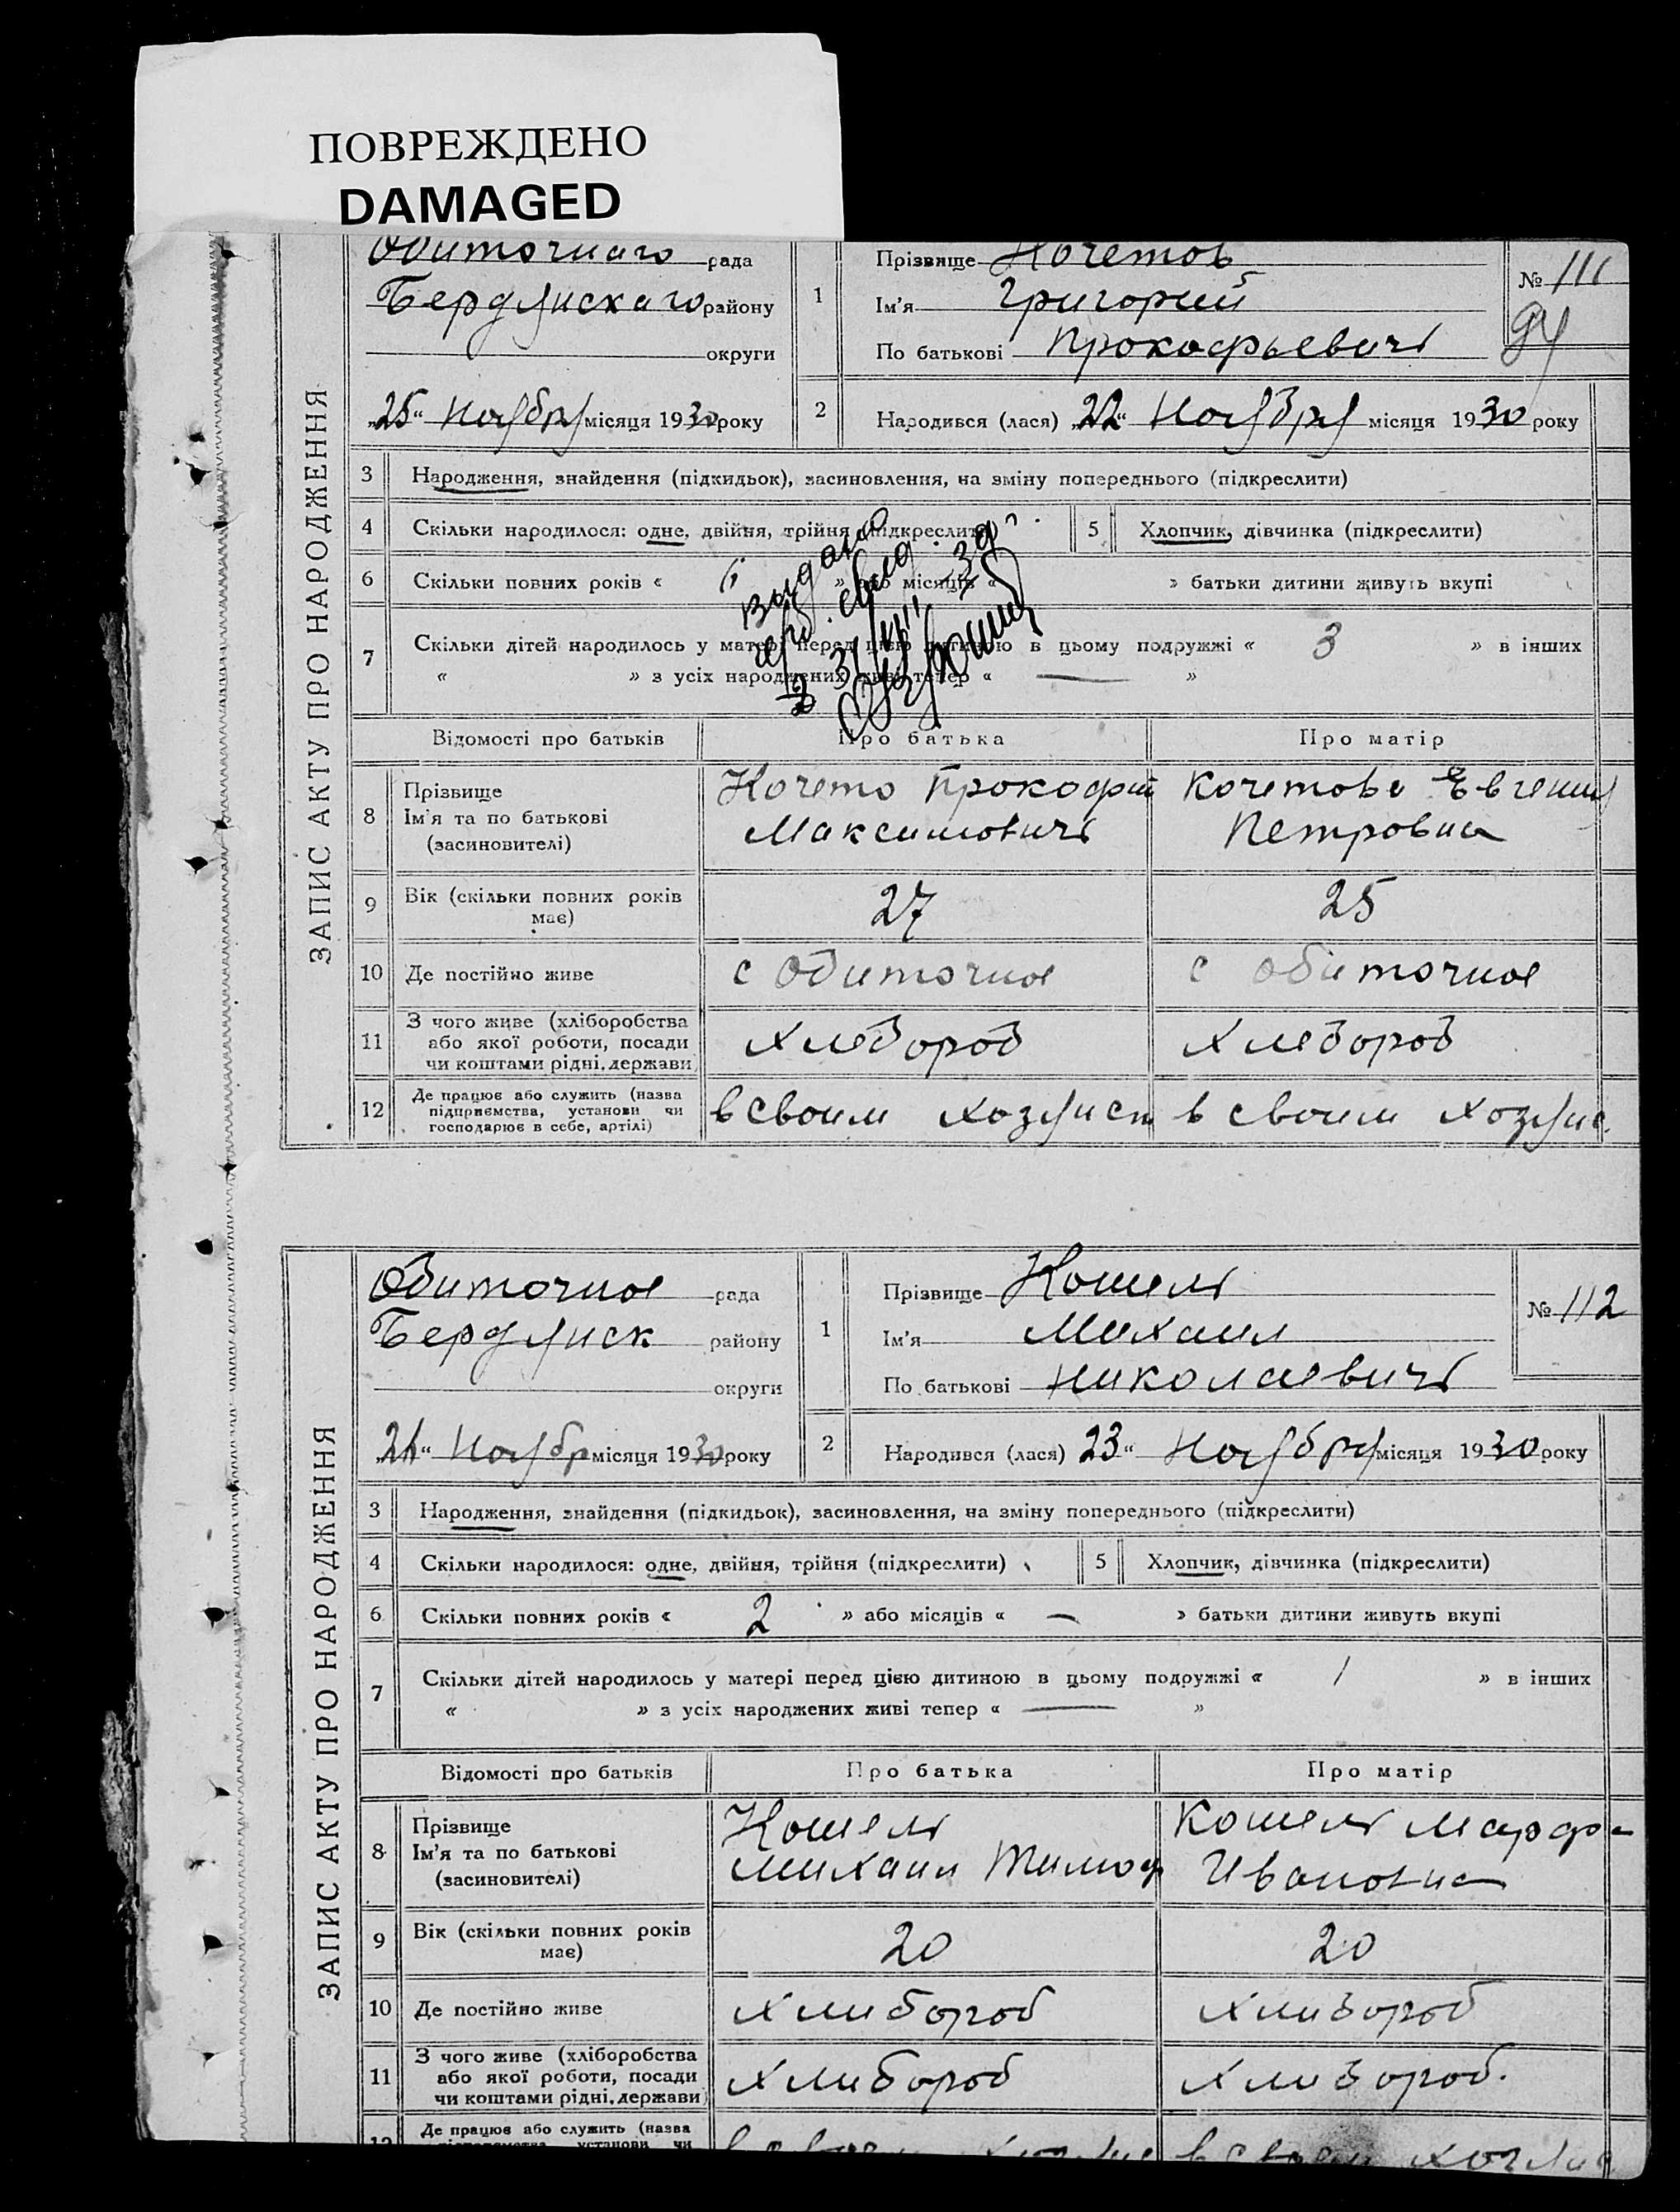 ПОВРЕЖДЕНО
DAMAGED
ЗАПИС АКТУ ПРО НАРОДЖЕННЯ
Обиточнаго рада
Бердянскаго району
округи
„25“ Ноября місяця 1930 року
1
Прізвище Кочетов
Ім'я Григорий
По батькові Прокофьевичь
№ 111
94
2
Народився (лася) „22“ Ноября місяця 1930 року
3 Народження, знайдення (підкидьок), засиновлення, на зміну попереднього (підкреслити)
4 Скільки народилося: одне, двійня, трійня (підкреслити)
5 Хлопчик, дівчинка (підкреслити)
6 Скільки повних років « 6 » або місяців « » батьки дитини живуть вкупі
7 Скільки дітей народилось у матері перед цією дитиною в цьому подружжі « 3 » в інших
« » з усіх народжених живі тепер « — »
Выдано
свид.
Відомості про батьків
Про батька
Про матір
8 Прізвище
Ім'я та по батькові
(засиновителі)
Кочето Прокофий
Максимовичь
Кочетова Евгения
Петровна
9 Вік (скільки повних років
має)
27
25
10 Де постійно живе
с Обиточное
с обиточное
11 З чого живе (хліборобства
або якої роботи, посади
чи коштами рідні, держави)
хлебороб
хлебороб
12 Де працює або служить (назва
підприємства, установи чи
господарює в себе, артілі)
в своим хозяист
в своим хозяис
ЗАПИС АКТУ ПРО НАРОДЖЕННЯ
Обиточное рада
Бердянск району
округи
місяця 1930 року
Ноябр
1
Прізвище Кошель
Ім'я Михаил
По батькові николаевичь
№ 112
2
Народився (лася) 23“ Ноября місяця 1930 року
3 Народження, знайдення (підкидьок), засиновлення, на зміну попереднього (підкреслити)
4 Скільки народилося: одне, двійня, трійня (підкреслити)
5 Хлопчик, дівчинка (підкреслити)
6 Скільки повних років « 2 » або місяців « — » батьки дитини живуть вкупі
7 Скільки дітей народилось у матері перед цією дитиною в цьому подружжі « 1 » в інших
« » з усіх народжених живі тепер « — »
Відомості про батьків
Про батька
Про матір
8 Прізвище
Ім'я та по батькові
(засиновителі)
Кошель
михаил Тимоф
Кошель Марфа
Ивановна
9 Вік (скільки повних років
має)
20
20
10 Де постійно живе
хлибороб
хлибороб
11 З чого живе (хліборобства
або якої роботи, посади
чи коштами рідні, держави)
хлибороб
хлибороб.
Де працює або служить (назва